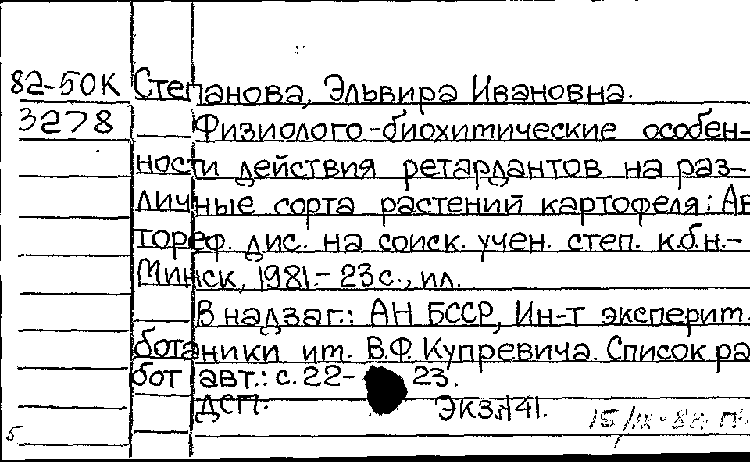 82-50К Степанова, Эльвира Ивановна.
3278 Физиолого-биохимические особен-
ности действия ретардантов на раз-
личные сорта растений картофеля: Ав
тореф. дис. на соиск. учен. степ. к.б.н.-
Минск, 1981.- 23с., ил.
В надзаг.: АН БССР, Ин-т эксперим.
ботаники им. В.Ф. Купревича. Список ра
бот авт.: с. 22- 23.
ДСП. ЭКЗ.№41.
5